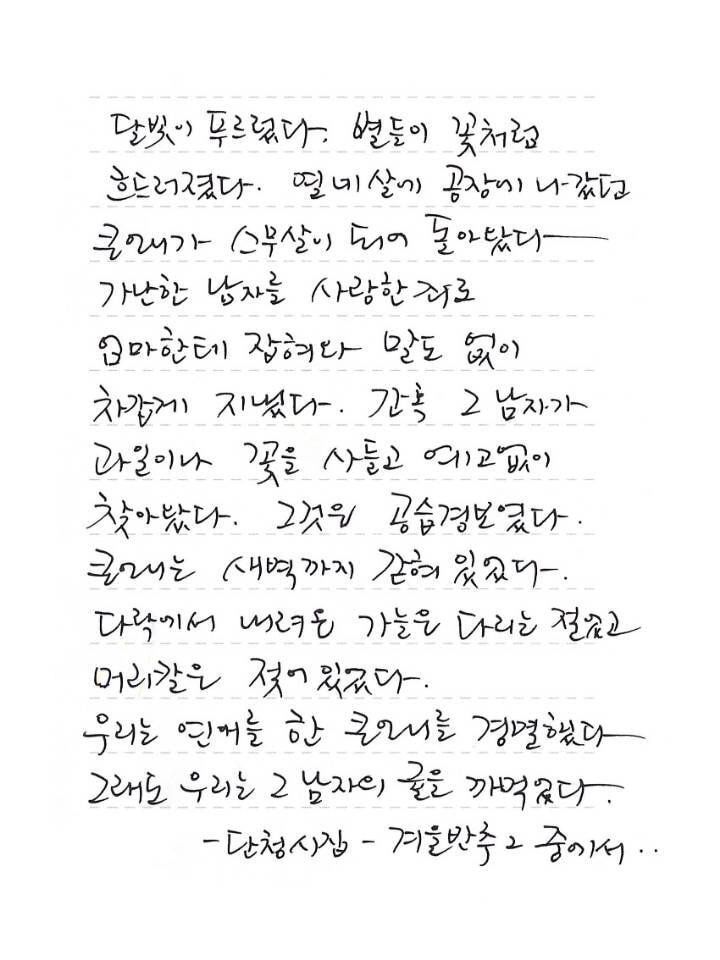 달빛이 푸르렀다. 별들이 꽃처럼
흐드러졌다. 열네살에 공장에 나갔던
큰언니가 스무살이 되어 돌아왔다
가난한 남자를 사랑한 죄로
엄마한테 잡혀와 말도 없이
차갑게 지냈다. 간혹 그 남자가
과일이나 꽃을 사들고 예고없이
찾아왔다. 그것은 공습경보였다.
큰언니는 새벽까지 갇혀 있었다.
다락에서 내려온 가늘은 다리는 절었고
머리칼은 젖어 있었다.
우리는 연애를 한 큰언니를 경멸했다
그래도 우리는 그 남자의 귤을 까먹었다.
- 단청시집 - 겨울반추2 중에서..